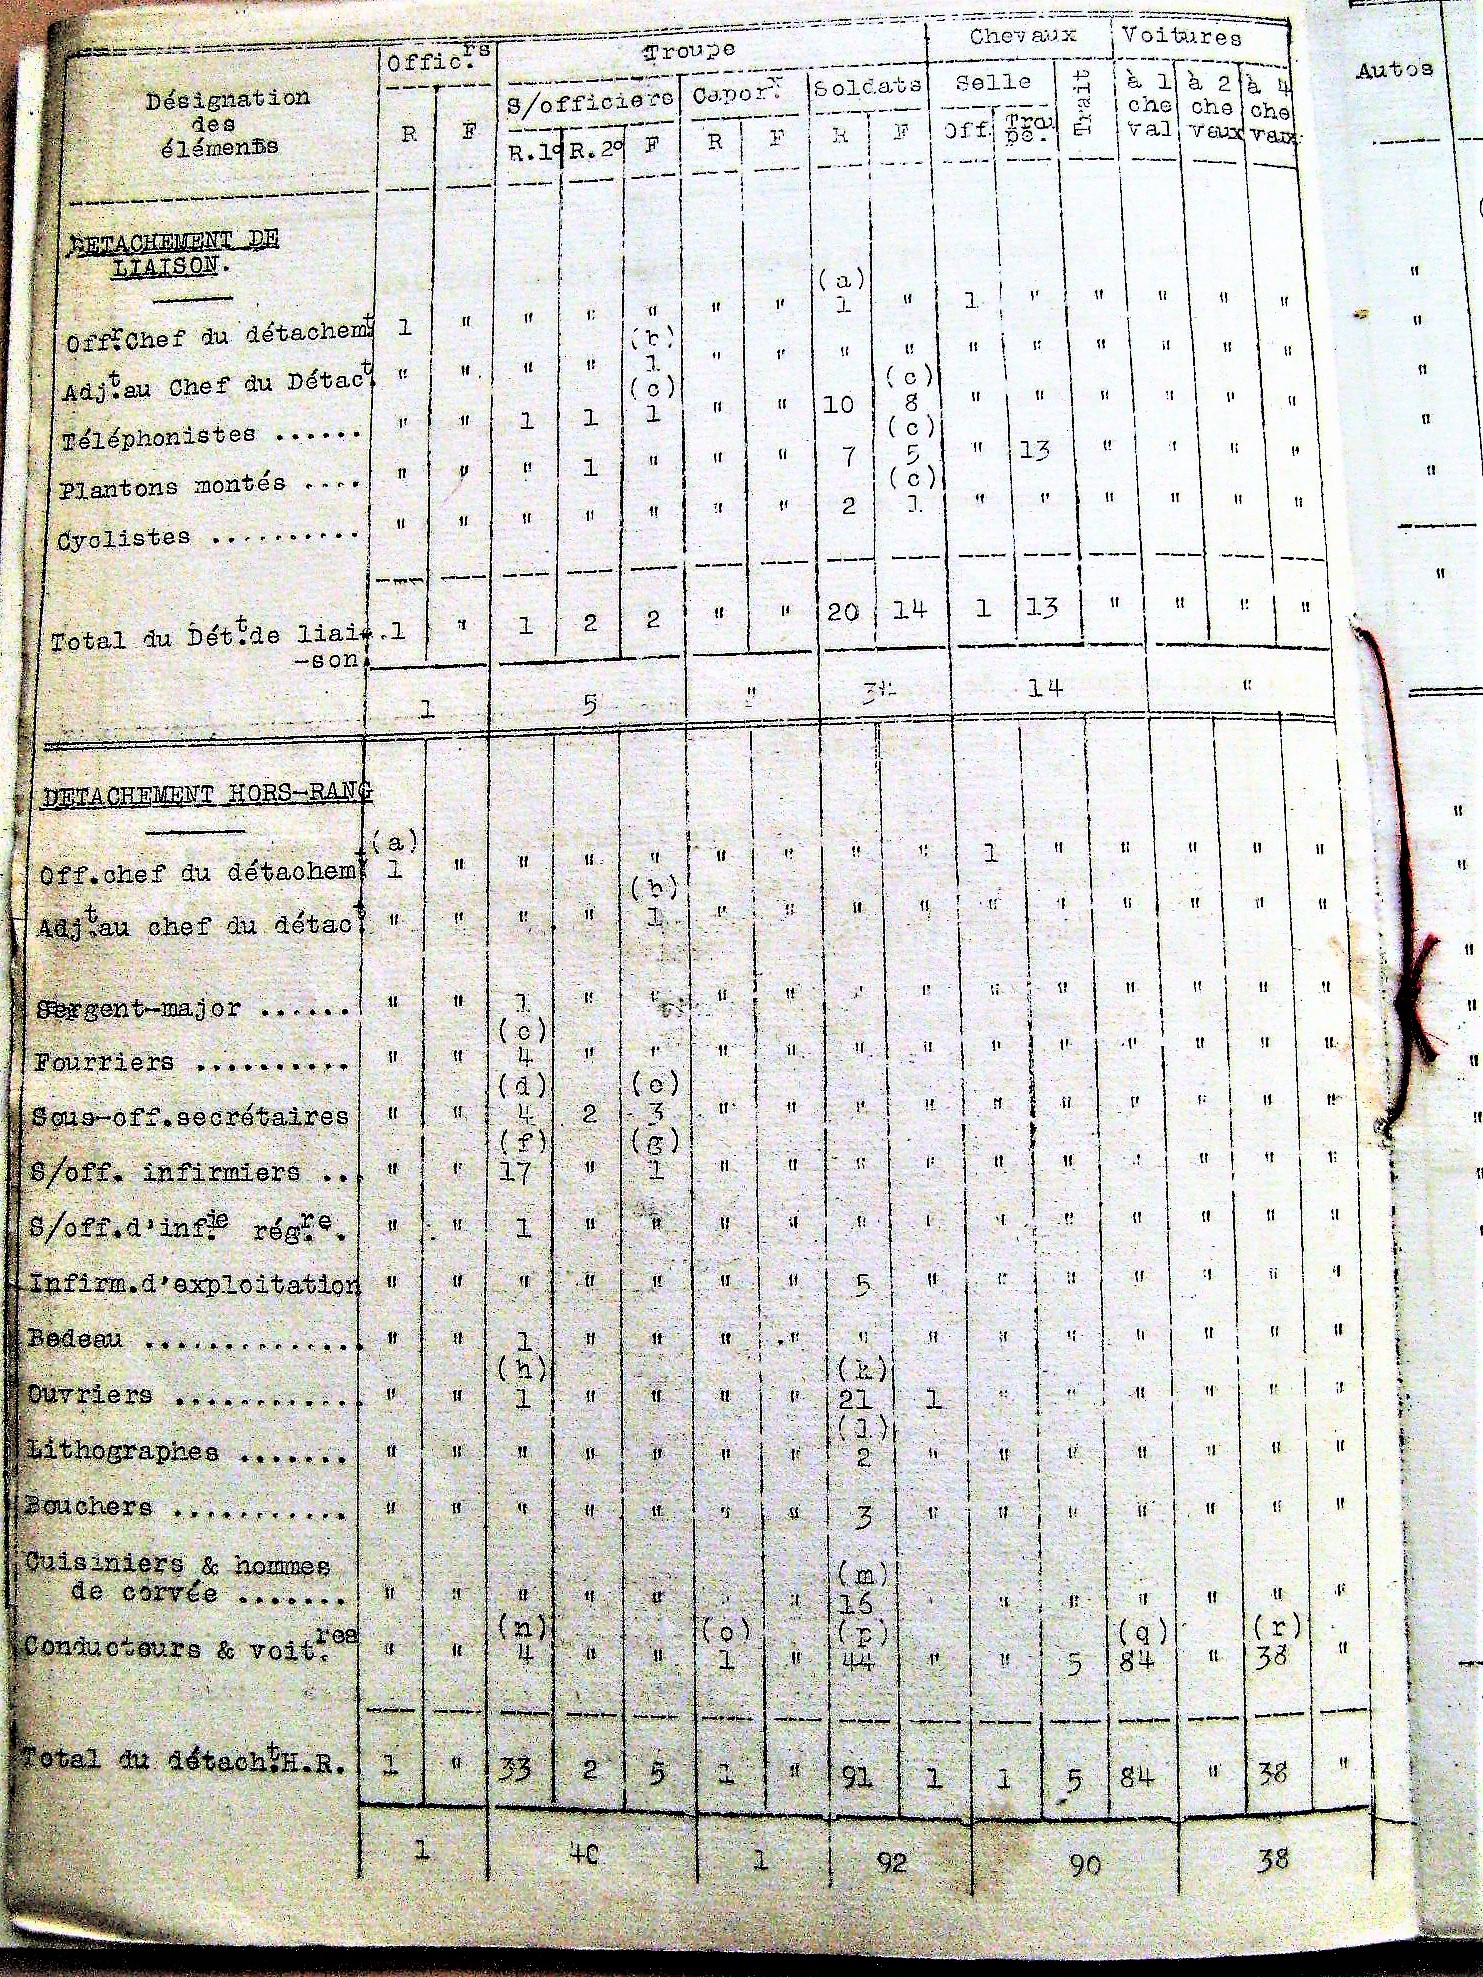 Désignation des éléments | Offic.rs | Troupe | Chevaux | Voitures
R | F | S/officiers | Capor.x | Soldats | Selle | Trait | à 1 che val | à 2 che vaux | à 4 che vaux
R.1° | R.2° | F | R | F | R | F | Off. | Trou pe.
DETACHEMENT DE
LIAISON.
(a)
Off.r Chef du détachem.t | 1 | " | " | " | " | " | " | 1 | " | 1 | " | " | " | " | "
(b)
Adj.t au Chef du Détac.t | " | " | " | " | 1 | " | " | " | " | " | " | " | " | " | "
(c) (c)
Téléphonistes ...... | " | " | 1 | 1 | 1 | " | " | 10 | 8 | " | " | " | " | " | "
(c)
Plantons montés .... | " | " | " | 1 | " | " | " | 7 | 5 | " | 13 | " | " | " | "
(c)
Cyclistes .......... | " | " | " | " | " | " | " | 2 | 1 | " | " | " | " | " | "
Total du Dét.t de liai- | 1 | " | 1 | 2 | 2 | " | " | 20 | 14 | 1 | 13 | " | " | " | "
-son.
1 | 5 | " | 34 | 14 | "
DETACHEMENT HORS-RANG
(a)
Off.chef du détachem.t | 1 | " | " | " | " | " | " | " | " | 1 | " | " | " | " | "
(b)
Adj.t au chef du détac.t | " | " | " | " | 1 | " | " | " | " | " | " | " | " | " | "
Sergent-major ...... | " | " | 1 | " | " | " | " | " | " | " | " | " | " | " | "
(c)
Fourriers .......... | " | " | 4 | " | " | " | " | " | " | " | " | " | " | " | "
(d) (e)
Sous-off.secrétaires | " | " | 4 | 2 | 3 | " | " | " | " | " | " | " | " | " | "
(f) (g)
S/off. infirmiers .. | " | " | 17 | " | 1 | " | " | " | " | " | " | " | " | " | "
S/off.d'inf.ie rég.re. | " | " | 1 | " | " | " | " | " | " | " | " | " | " | " | "
Infirm.d'exploitation | " | " | " | " | " | " | " | 5 | " | " | " | " | " | " | "
Bedeau .............. | " | " | 1 | " | " | " | " | " | " | " | " | " | " | " | "
(h) (k)
Ouvriers ............ | " | " | 1 | " | " | " | " | 21 | 1 | " | " | " | " | " | "
(l)
Lithographes ....... | " | " | " | " | " | " | " | 2 | " | " | " | " | " | " | "
Bouchers ........... | " | " | " | " | " | " | " | 3 | " | " | " | " | " | " | "
Cuisiniers & hommes
(m)
de corvée ....... | " | " | " | " | " | " | " | 16 | " | " | " | " | " | " | "
(n) (o) (p) (q) (r)
Conducteurs & voit.res | " | " | 4 | " | " | 1 | " | 44 | " | " | 5 | 84 | " | 38 | "
Total du détach.t H.R. | 1 | " | 33 | 2 | 5 | 1 | " | 91 | 1 | 1 | 5 | 84 | " | 38 | "
1 | 40 | 1 | 92 | 90 | 38
Autos